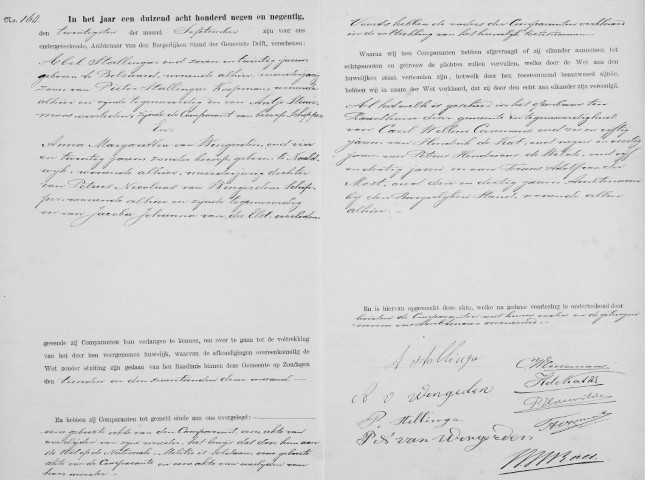 No. 160. In het jaar een duizend acht honderd negen en negentig,
den twintigsten der maand September zijn voor ons
ondergeteekende, Ambtenaar van den Burgerlijken Stand der Gemeente Delft, verschenen:
Abel Stallinga oud zeven en twintig jaren
geboren te Bolsward, wonende alhier, meerderjarig
zoon van Pieter Stallinga Koopman, wonende
alhier en zijnde tegenwoordig en van Antje
overleden, zijnde de Comparant van beroep Schipper
En
Anna Margaretha van Wengerden, oud
en twintig jaren zonder beroep, geboren te
wonende alhier, meerderjarige dochter
van Petrus Nicolaas van Wengerden Schip-
per, wonende alhier en zijnde tegenwoordig
en van Jacoba Johanna van der Elst, overleden
gevende zij Comparanten hun verlangen te kennen, om over te gaan tot de voltrekking
van het door hen voorgenomen huwelijk, waarvan de afkondigingen overeenkomstig de
Wet zonder stuiting zijn gedaan van het Raadhuis binnen deze Gemeente op Zondagen
den tienden en den zeventienden dezer maand
En hebben zij Comparanten tot gemeld einde aan ons overgelegd:
eene geboorte akte van den Comparant eene akte van
overlijden van zijne moeder. het bewijs dat door hem aan
de Wet op de Nationale Militie is voldaan eene geboorte
akte van de Comparante en eene akte van overlijden van
hare moeder
Voorts hebben de vaders der Comparanten verklaard
in de voltrekking van het huwelijk toetestemmen.
Waarna wij hen Comparanten hebben afgevraagd of zij elkander aannemen tot
echtgenooten en getrouw de plichten zullen vervullen, welke door de Wet aan den
huwelijken staat verbonden zijn, hetwelk door hen toestemmend beantwoord zijnde,
hebben wij in naam der Wet verklaard, dat zij door den echt aan elkander zijn vereenigd.
Al hetwelk is geschied in het openbaar ten
Raadhuize dezer gemeente in tegenwoordigheid
van Carel Willem oud zes en vijftig
jaren van Hendrik de Kat, oud negen en veertig
jaren van Petrus Hendricus de Wilde, oud vijf
en dertig jaren en van Frans Adolf van der
Most, oud drie en dertig jaren Ambtenaren
bij den Burgerlijken Stand, wonende allen
alhier.
En is hiervan opgemaakt deze akte, welke na gedane voorlezing is onderteekend door
beiden de Comparanten met hunne vaders en de getuigen
A Stallinga
K de Kat Hz
A v Wengerden
P. Stallinga
P N van Wengerden